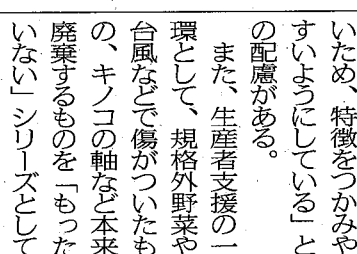 いため、特徴をつかみや
すいようにしている」と
の配慮がある。
また、生産者支援の一
環として、規格外野菜や
台風などで傷がついたも
の、キノコの軸など本来
廃棄するものを「もった
いない」シリーズとして